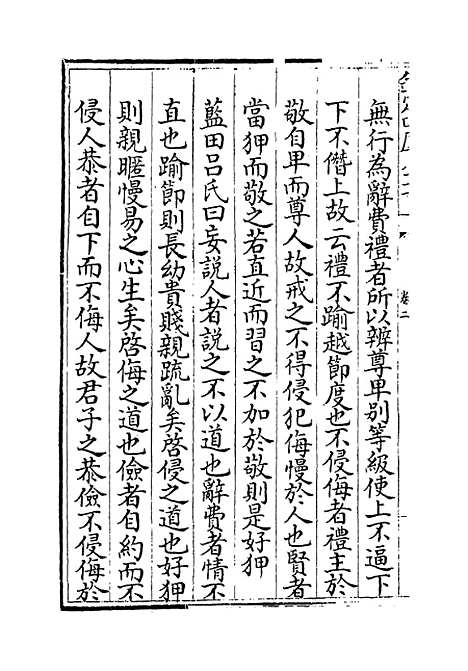 無行為辭費禮者所以辨尊卑别等級使上不逼下
下不僭上故云禮不踰越節度也不侵侮者禮主於
敬自卑而尊人故戒之不得侵犯侮慢於人也賢者
當狎而敬之若直近而習之不加於敬則是好狎
藍田吕氏曰妄説人者説之不以道也辭費者情不
直也踰節則長幼貴賤親疏亂矣啓侵之道也好狎
則親暱慢易之心生矣啓侮之道也儉者自約而不
侵人恭者自下而不侮人故君子之恭儉不侵侮於
卷二